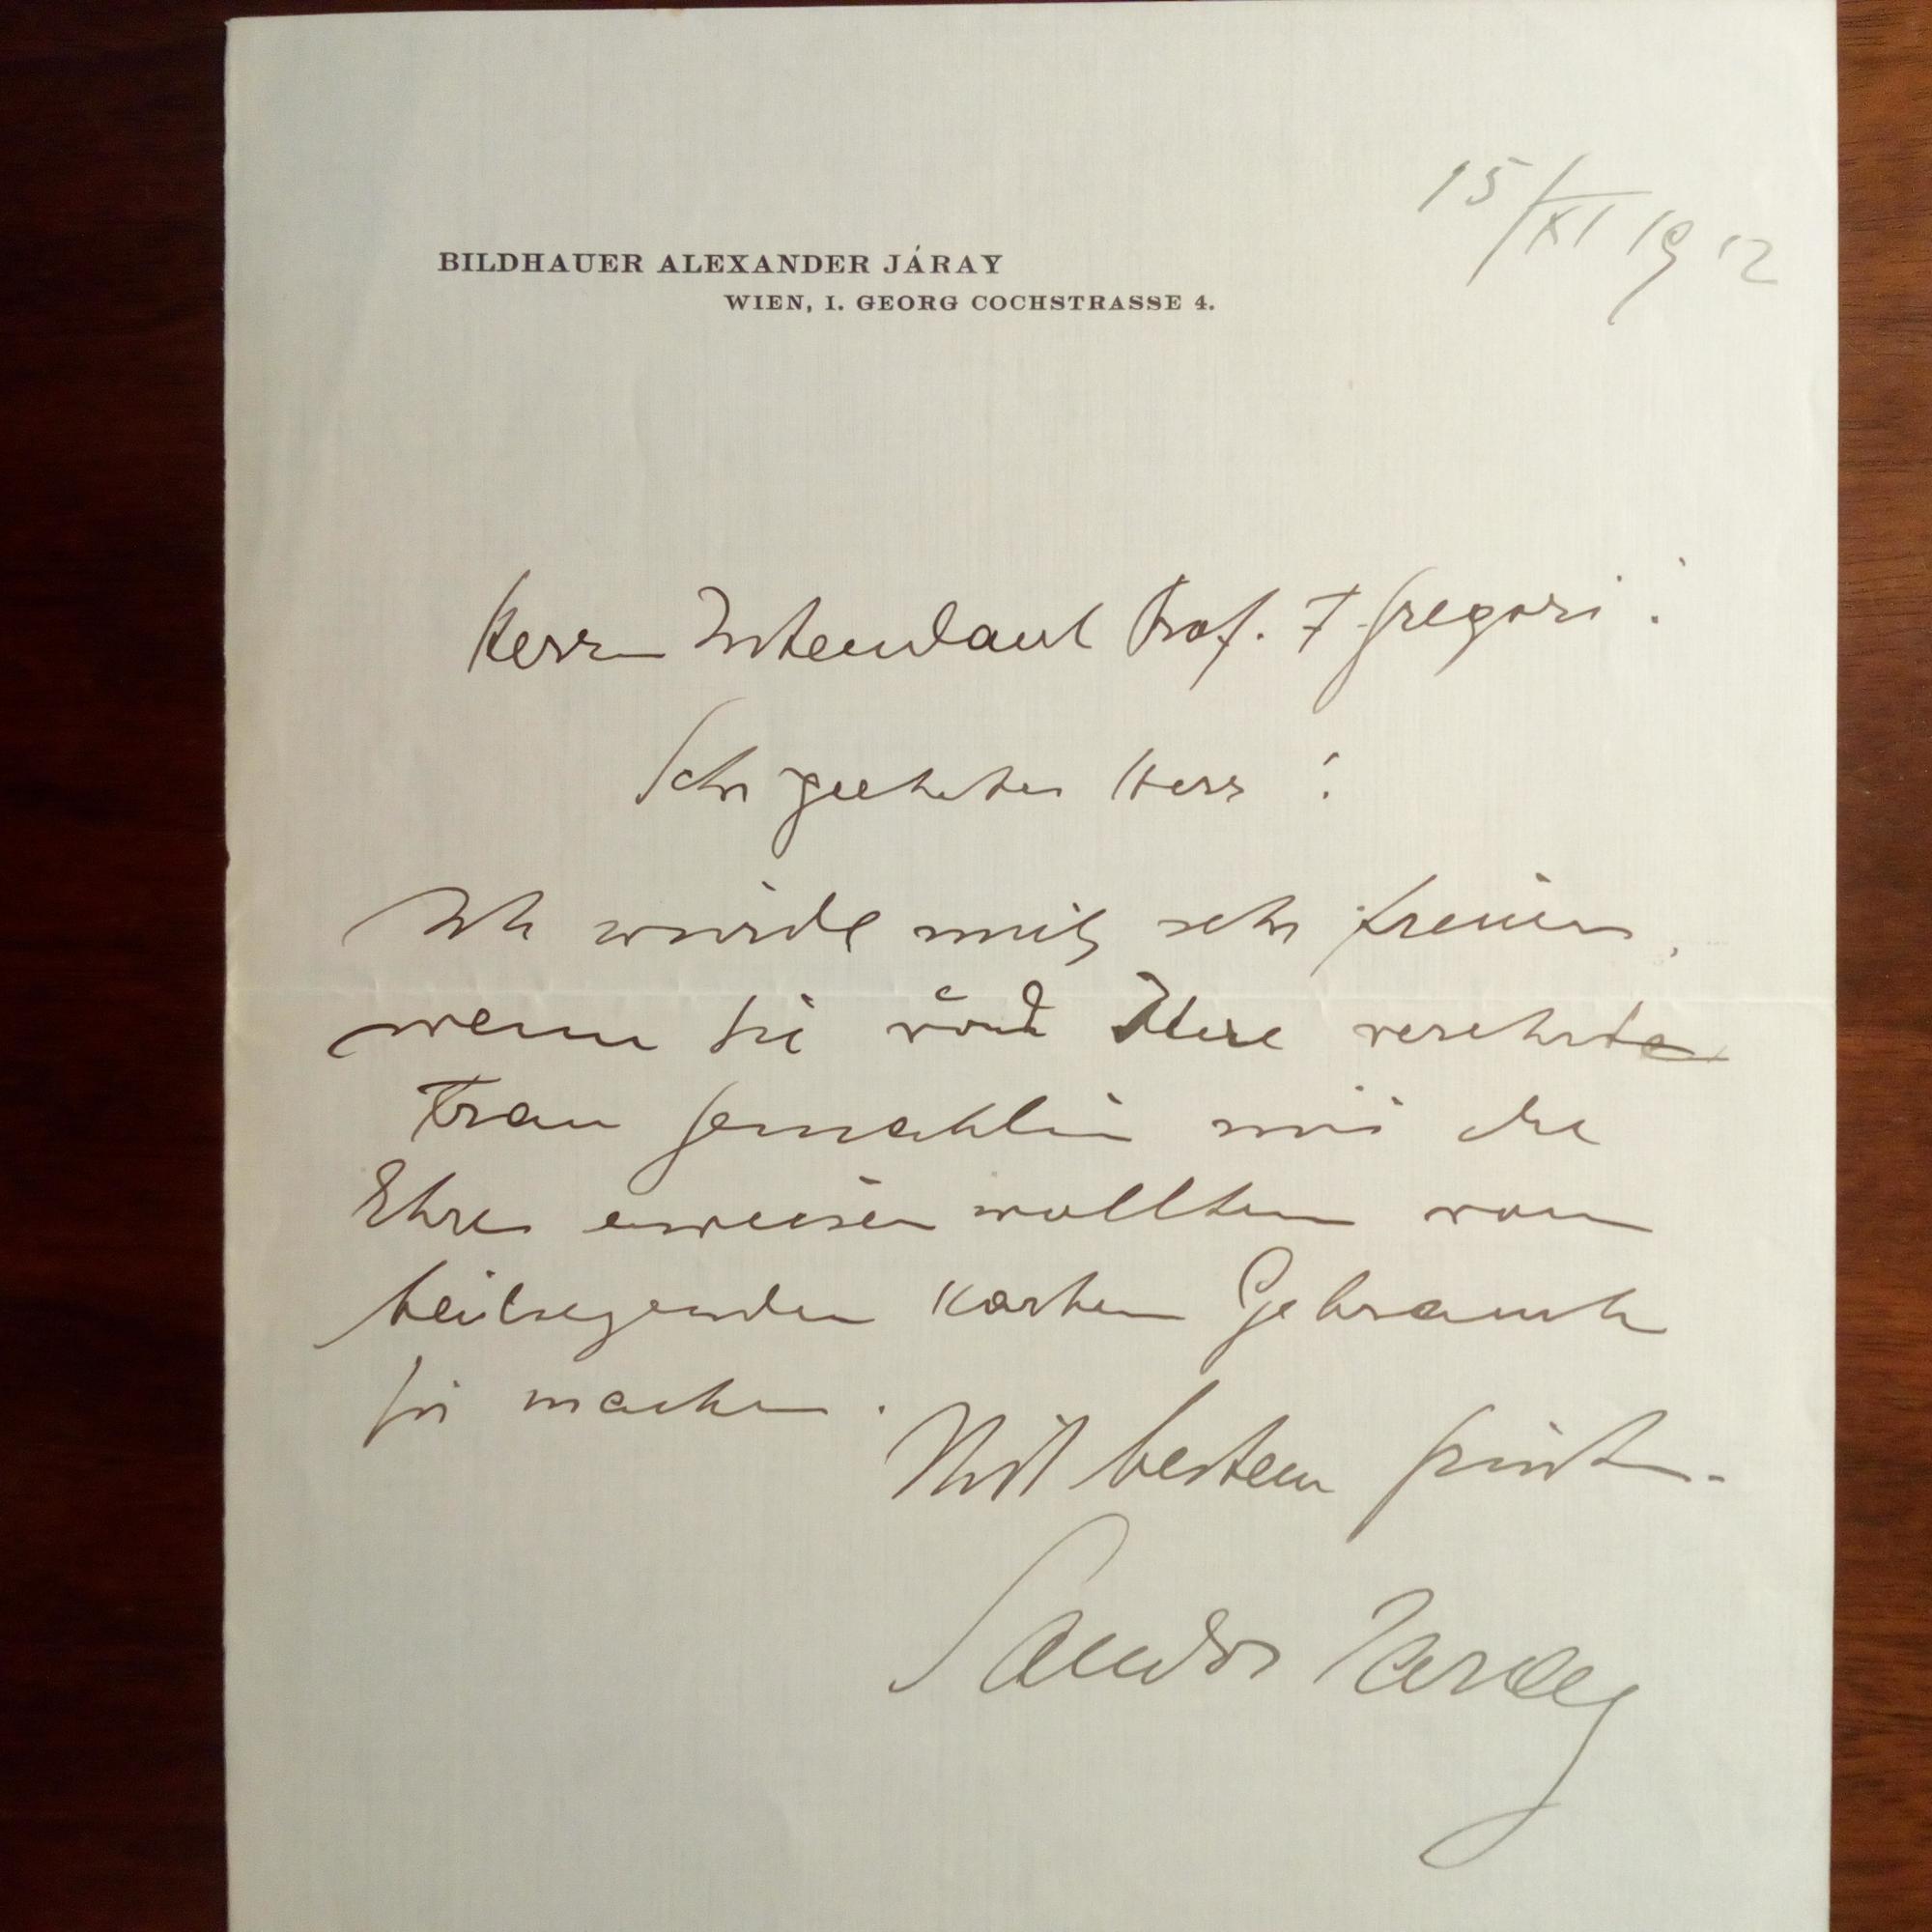 15/XI 1912
BILDHAUER ALEXANDER JÁRAY
WIEN, I. GEORG COCHSTRASSE 4.
Herrn Intendant Prof. F. Gregori!
Sehr geehrter Herr!
Ich würde mich sehr freuen,
wenn Sie und Ihre verehrte
Frau Gemahlin mir die
Ehre erweisen wollten von
beiliegenden Karten Gebrauch
zu machen.
Mit bestem Gruß
Sandor Jaray